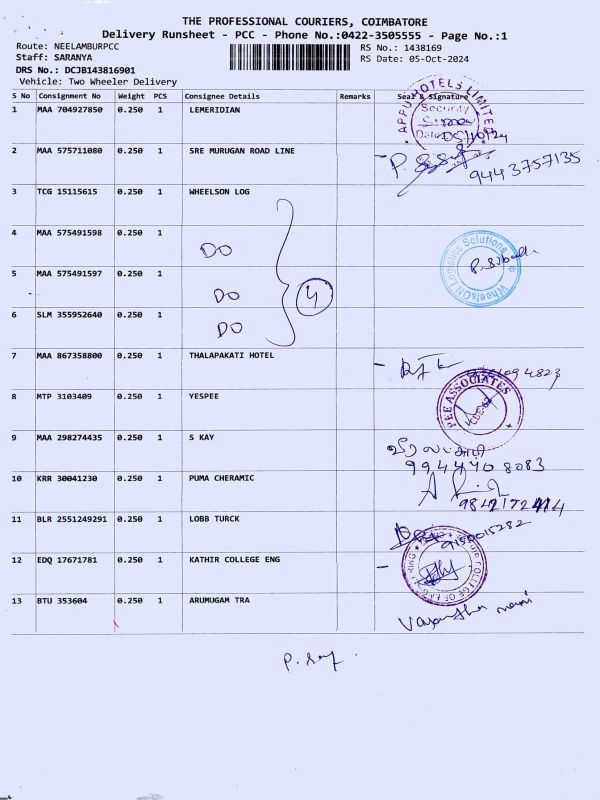 THE PROFESSIONAL COURIERS, COIMBATORE
Delivery Runsheet - PCC - Phone No.:0422-3505555 - Page No.:1
Route: NEELAMBURPCC RS No.: 1438169
Staff: SARANYA RS Date: 05-Oct-2024
DRS No.: DCJB143816901
Vehicle: Two Wheeler Delivery
S No Consignment No Weight PCS Consignee Details Remarks Seal & Signature
1 MAA 704927850 0.250 1 LEMERIDIAN
APPU HOTELS LIMITED
Security
Date 05/10/24
2 MAA 575711080 0.250 1 SRE MURUGAN ROAD LINE
9443757135
3 TCG 15115615 0.250 1 WHEELSON LOG
4 MAA 575491598 0.250 1 DO
WheelsON Logistics Solutions
5 MAA 575491597 0.250 1 DO 4
6 SLM 355952640 0.250 1 DO
7 MAA 867358800 0.250 1 THALAPAKATI HOTEL
8 MTP 3103409 0.250 1 YESPEE
PEE ASSOCIATES
9 MAA 298274435 0.250 1 S KAY
9944708083
10 KRR 30041230 0.250 1 PUMA CHERAMIC
11 BLR 2551249291 0.250 1 LOBB TURCK
9150015282
12 EDQ 17671781 0.250 1 KATHIR COLLEGE ENG
COLLEGE OF
13 BTU 353604 0.250 1 ARUMUGAM TRA